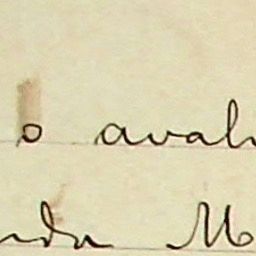 o aval
nda M